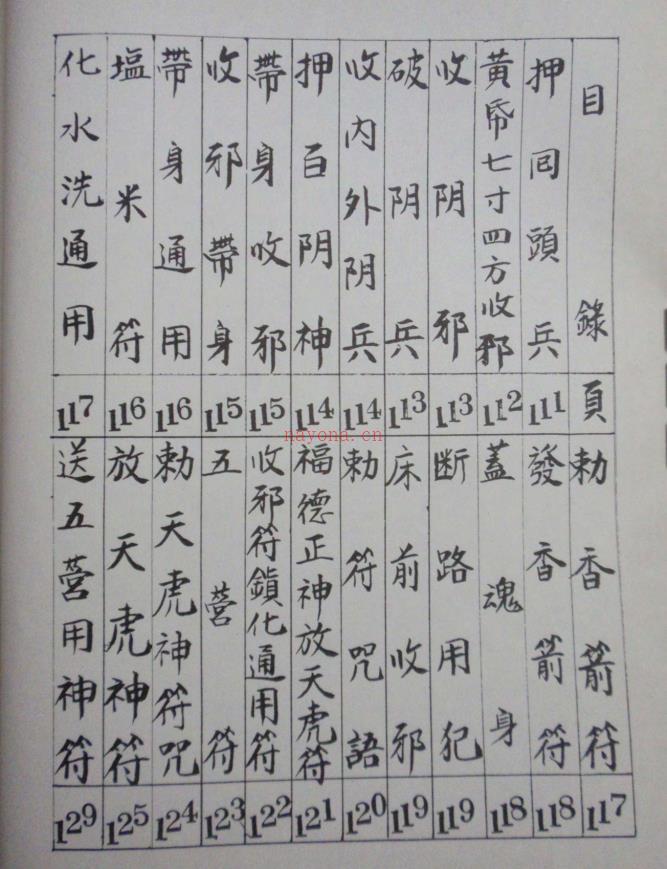 目錄 頁
押回頭兵 111
黃帋七寸四方收邪 112
收阴邪 113
破阴兵 113
收内外阴兵 114
押百阴神 114
帶身收邪 115
收邪帶身 115
帶身通用 116
塩米符 116
化水洗通用 117
勅香箭符 117
發香箭符 118
蓋魂身 118
断路用犯 119
床前收邪 119
勅符咒語 120
福德正神放天虎符 121
收邪符鎮化通用符 122
五營符 123
勅天虎神符咒 124
放天虎神符 125
送五营用神符 129
nayona.cn